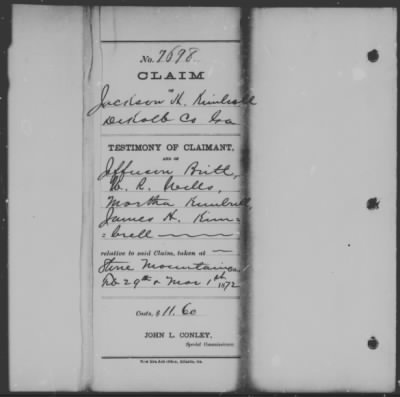 No. 7698
CLAIM
of
Jackson H. Kimbrell
DeKalb Co Ga
TESTIMONY OF CLAIMANT,
AND OF
Jefferson Britt,
W. R. Wells,
Martha Kimbrell,
James H. Kim=
=brell
relative to said Claim, taken at
Stone Mountain Ga
Feb 29th & Mar 1st 1872
Costs, $ 11.60
JOHN L. CONLEY,
Special Commissioner.
New Era Job Office, Atlanta, Ga.